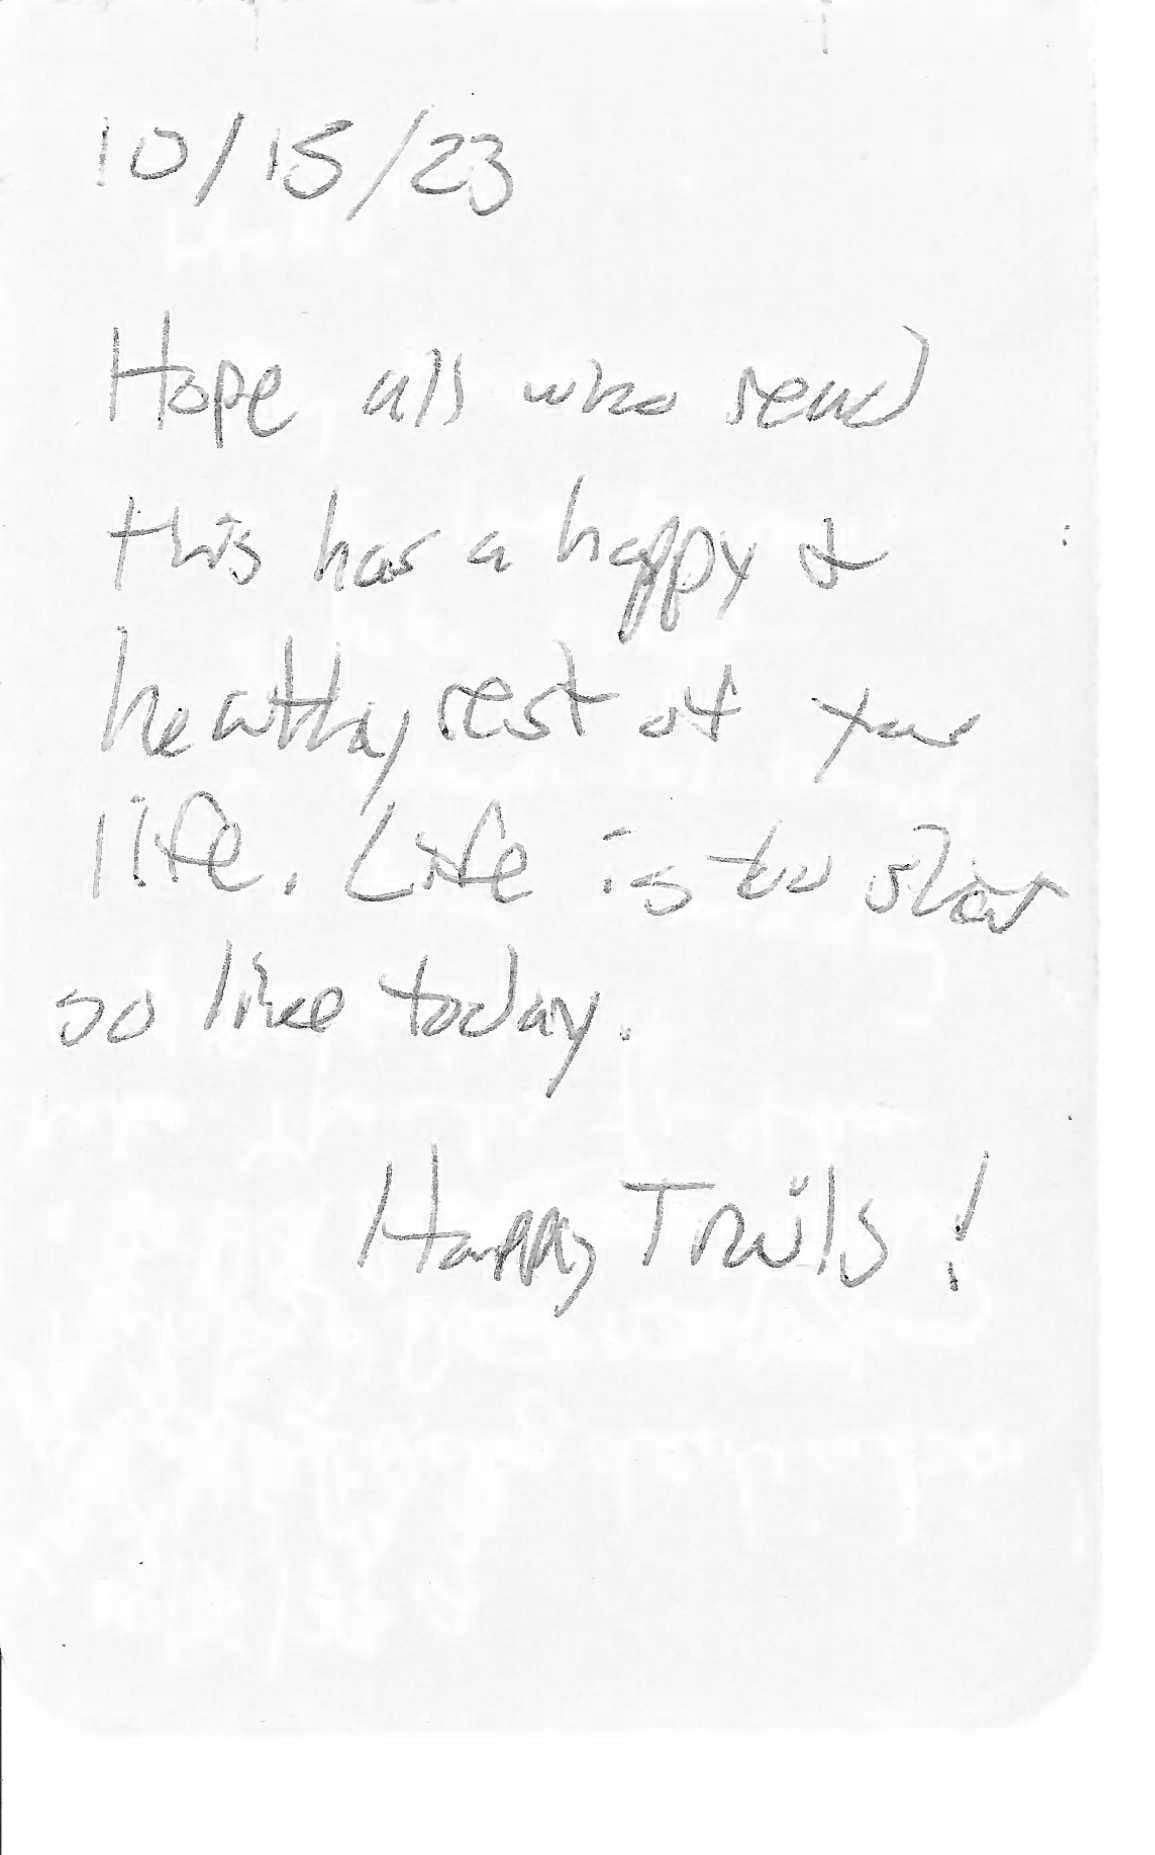 10/15/23
Hope all who read
this has a happy &
healthy rest of your
life. Life is too short
so like today.
Happy Trails!